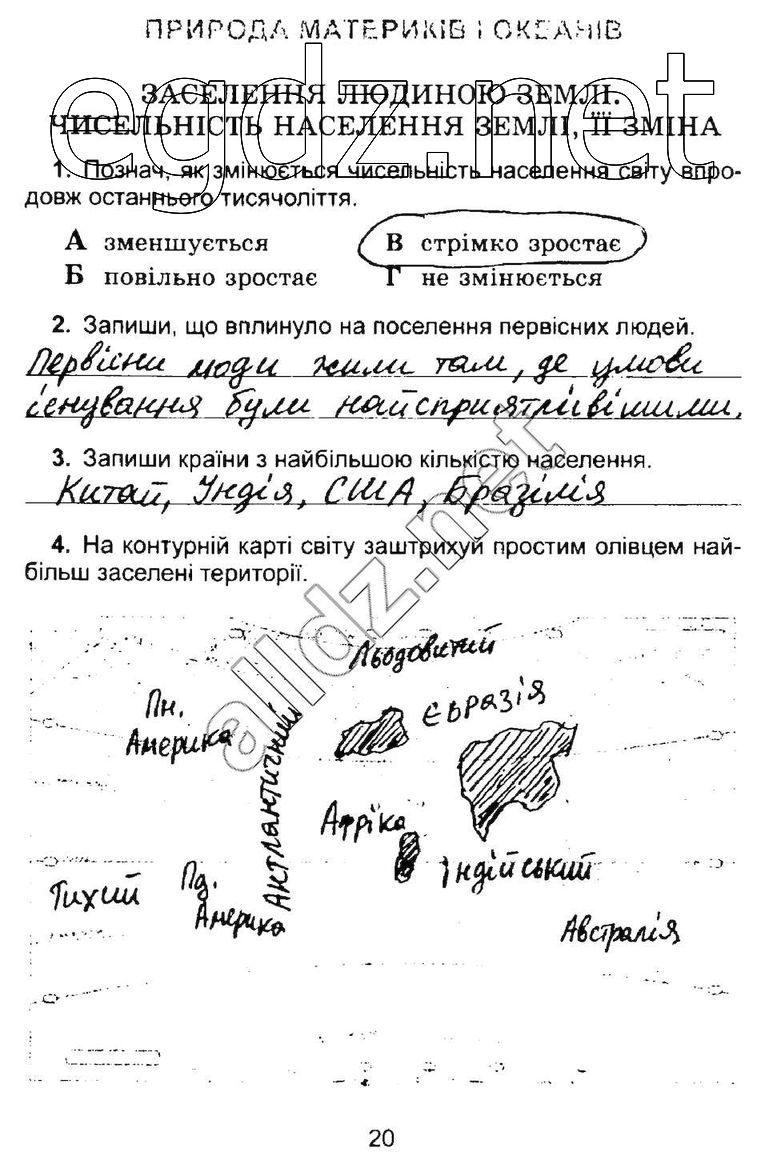 ПРИРОДА МАТЕРИКІВ І ОКЕАНІВ
egdz.net
ЗАСЕЛЕННЯ ЛЮДИНОЮ ЗЕМЛІ.
ЧИСЕЛЬНІСТЬ НАСЕЛЕННЯ ЗЕМЛІ, ЇЇ ЗМІНА
1. Познач, як змінюється чисельність населення світу впро-
довж останнього тисячоліття.
А зменшується
В стрімко зростає
Б повільно зростає
Г не змінюється
2. Запиши, що вплинуло на поселення первісних людей.
Первісни люди жили там, де умови
існування були найсприятлівішими.
3. Запиши країни з найбільшою кількістю населення.
Китай, Індія, США, Бразілія
4. На контурній карті світу заштрихуй простим олівцем най-
більш заселені території.
alldz.net
Льодовитий
Пн.
Америка
Євразія
Актлантичний
Африка
Індійський
Тихий
Пд.
Америка
Австралія
20